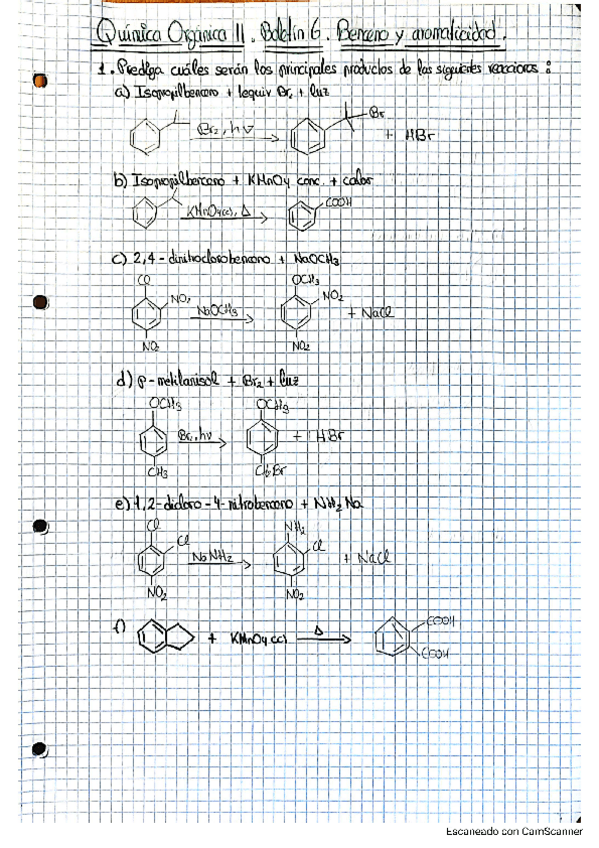 Química Orgánica II. Boletín 6. Benceno y aromaticidad.
1. Prediga cuáles serán los principales productos de las siguientes reacciones:
a) Isopropilbenceno + 1equiv Br₂ + luz
Br₂, hν
Br
+ HBr
b) Isopropilbenceno + KMnO₄ conc. + calor
KMnO₄(c), Δ
COOH
c) 2,4-dinitroclorobenceno + NaOCH₃
Cl OCH₃
NO₂ NaOCH₃ NO₂ + NaCl
NO₂ NO₂
d) p-metilanisol + Br₂ + luz
OCH₃ OCH₃
Br₂, hν + HBr
CH₃ CH₂Br
e) 1,2-dicloro-4-nitrobenceno + NH₂Na
Cl NH₂
Cl NaNH₂ Cl + NaCl
NO₂ NO₂
f) + KMnO₄(c) Δ COOH
COOH
Escaneado con CamScanner